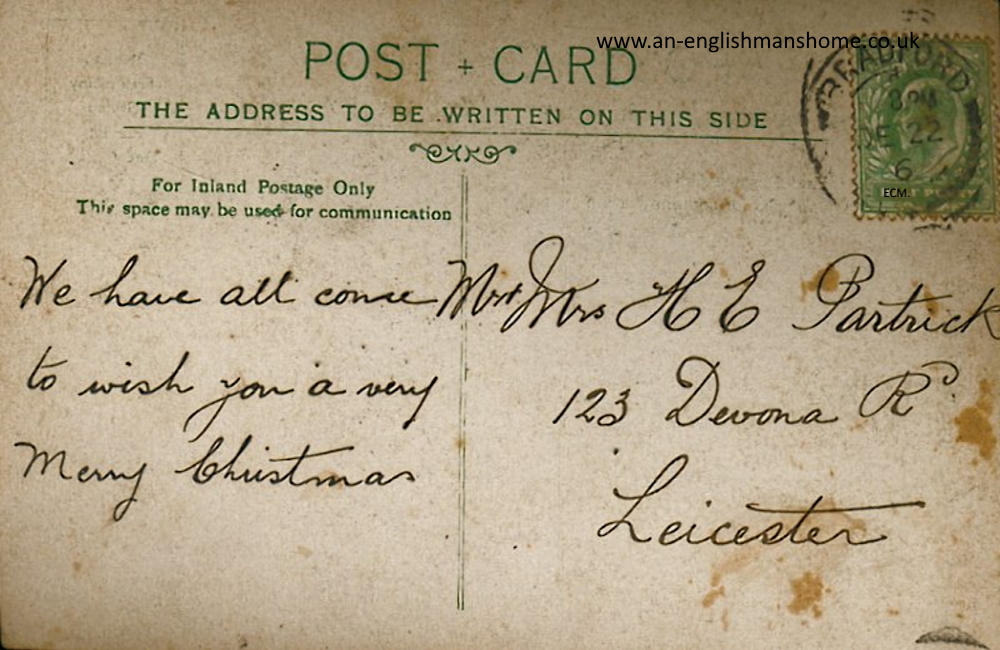 www.an-englishmanshome.co.uk
POST + CARD
THE ADDRESS TO BE WRITTEN ON THIS SIDE
BRADFORD
8 PM
DE 22
6
ECM.
For Inland Postage Only
This space may be used for communication
We have all come
to wish you a very
Merry Christmas
Mr & Mrs H E Partrick
123 Devona Rd.
Leicester